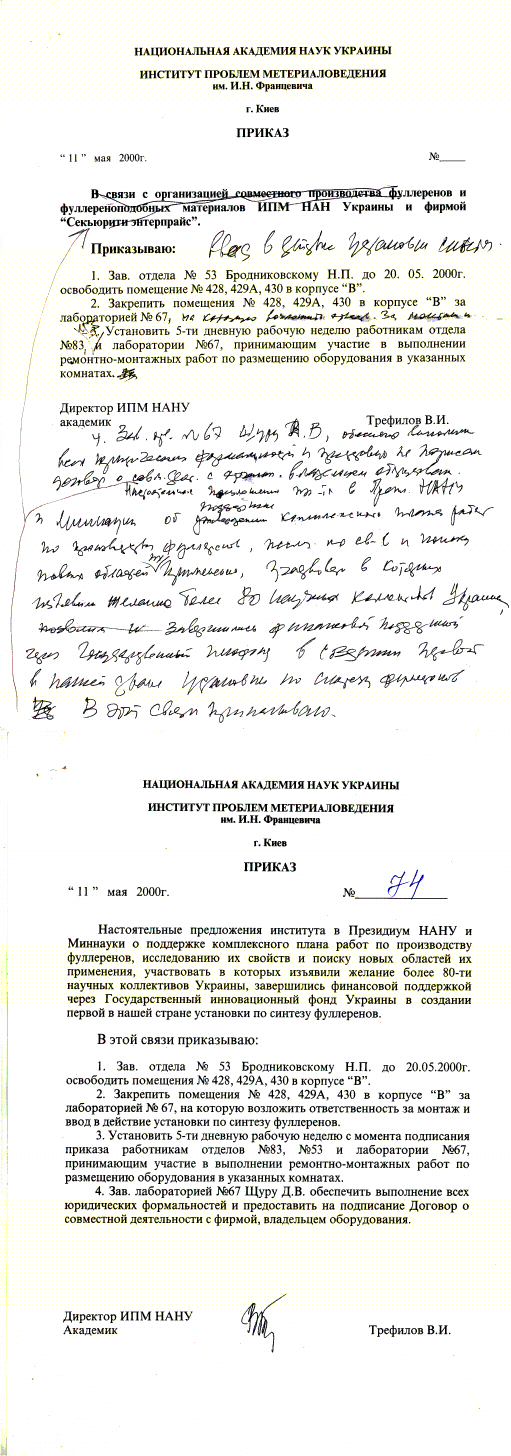 НАЦИОНАЛЬНАЯ АКАДЕМИЯ НАУК УКРАИНЫ
ИНСТИТУТ ПРОБЛЕМ МЕТЕРИАЛОВЕДЕНИЯ
им. И.Н. Францевича
г. Киев
ПРИКАЗ
“ 11 ” мая 2000г. №_____
В связи с организацией совместного производства фуллеренов и
фуллереноподобных материалов ИПМ НАН Украины и фирмой
“Секьюрити энтерпрайс”.
Приказываю: Ввод в действие установки синтеза.
1. Зав. отдела № 53 Бродниковскому Н.П. до 20. 05. 2000г.
освободить помещение № 428, 429А, 430 в корпусе “В”.
2. Закрепить помещения № 428, 429А, 430 в корпусе “В” за
лабораторией № 67, на которую возложить за монтаж и
Установить 5-ти дневную рабочую неделю работникам отдела
№83, и лаборатории №67, принимающим участие в выполнении
ремонтно-монтажных работ по размещению оборудования в указанных
комнатах.
Директор ИПМ НАНУ
академик Трефилов В.И.
4. Зав. №67 Щуру Д.В,
всех юридических формальностей и на подписан
договор о с владельцем оборудован.
предложения в През. НАНУ
и Миннауки о поддержке комплексного плана работ
по производству фуллеренов, и поиску
новых областей их применения, участвовать в которых
изъявили желание более 80 научных коллективов Украины,
завершились финансовой поддержкой
через Государственный в создании первой
в нашей стране установки по синтезу фуллеренов
В этой связи приказываю.
НАЦИОНАЛЬНАЯ АКАДЕМИЯ НАУК УКРАИНЫ
ИНСТИТУТ ПРОБЛЕМ МЕТЕРИАЛОВЕДЕНИЯ
им. И.Н. Францевича
г. Киев
ПРИКАЗ
“ 11 ” мая 2000г. № 74
Настоятельные предложения института в Президиум НАНУ и
Миннауки о поддержке комплексного плана работ по производству
фуллеренов, исследованию их свойств и поиску новых областей их
применения, участвовать в которых изъявили желание более 80-ти
научных коллективов Украины, завершились финансовой поддержкой
через Государственный инновационный фонд Украины в создании
первой в нашей стране установки по синтезу фуллеренов.
В этой связи приказываю:
1. Зав. отдела № 53 Бродниковскому Н.П. до 20.05.2000г.
освободить помещения № 428, 429А, 430 в корпусе “В”.
2. Закрепить помещения № 428, 429А, 430 в корпусе “В” за
лабораторией № 67, на которую возложить ответственность за монтаж и
ввод в действие установки по синтезу фуллеренов.
3. Установить 5-ти дневную рабочую неделю с момента подписания
приказа работникам отделов №83, №53 и лаборатории №67,
принимающим участие в выполнении ремонтно-монтажных работ по
размещению оборудования в указанных комнатах.
4. Зав. лабораторией №67 Щуру Д.В. обеспечить выполнение всех
юридических формальностей и предоставить на подписание Договор о
совместной деятельности с фирмой, владельцем оборудования.
Директор ИПМ НАНУ
Академик Трефилов В.И.